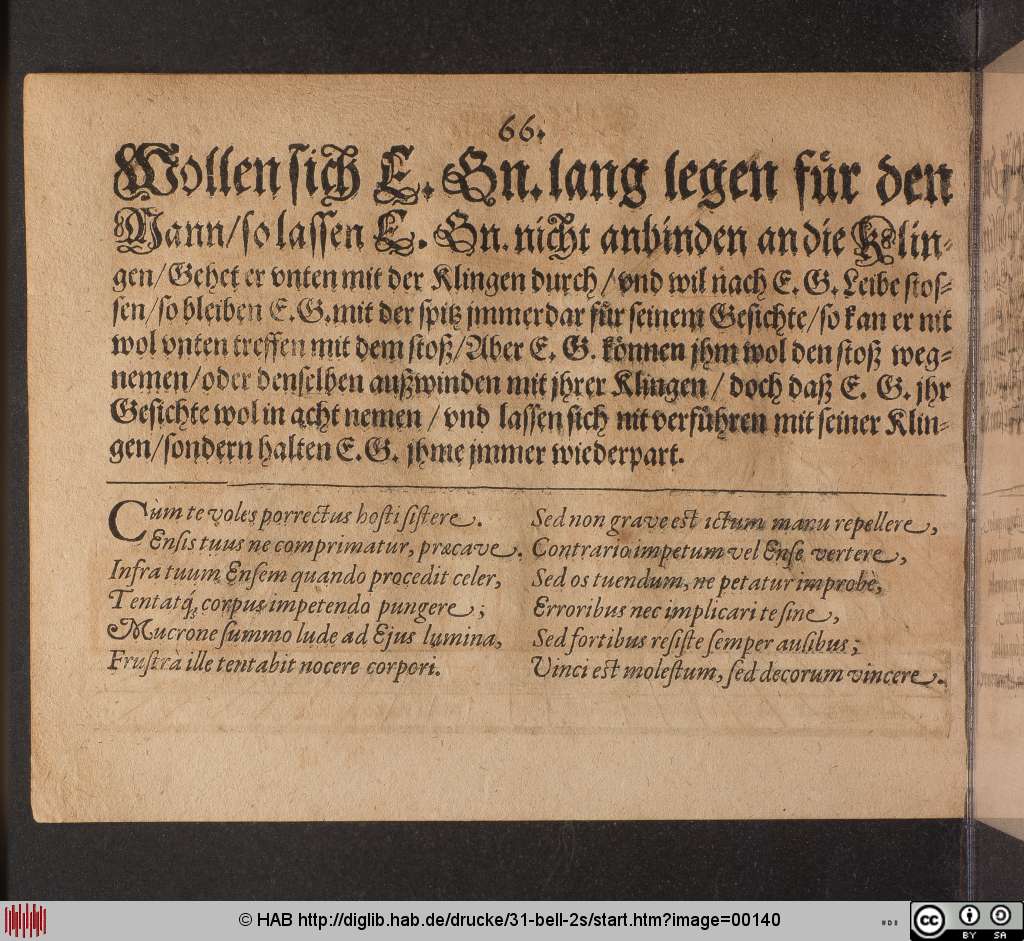 66.
Wollen sich E. Gn. lang legen für den
Mann/so lassen E. Gn. nicht anbinden an die Klin-
gen/Gehet er vnten mit der Klingen durch/vnd wil nach E. G. Leibe stos-
sen/so bleiben E.G. mit der spitz jmmerdar für seinem Gesichte/so kan er nit
wol vnten treffen mit dem stoß/Aber E. G. können jhm wol den stoß weg-
nemen/oder denselben außwinden mit jhrer Klingen/doch daß E. G. jhr
Gesichte wol in acht nemen/vnd lassen sich nit verführen mit seiner Klin-
gen/sondern halten E.G. jhme jmmer wiederpart.
Cùm te voles porrectus hosti sistere.
Ensis tuus ne comprimatur, præcave.
Infra tuum Ensem quando procedit celer,
Tentatq́; corpus impetendo pungere;
Mucrone summo lude ad Ejus lumina,
Frustrà ille tentabit nocere corpori.
Sed non grave est ictum manu repellere,
Contrario impetum vel Ense vertere,
Sed os tuendum, ne petatur improbè,
Erroribus nec implicari te sine,
Sed fortibus resiste semper ausibus;
Vinci est molestum, sed decorum vincere.
© HAB http://diglib.hab.de/drucke/31-bell-2s/start.htm?image=00140
cc
BY SA